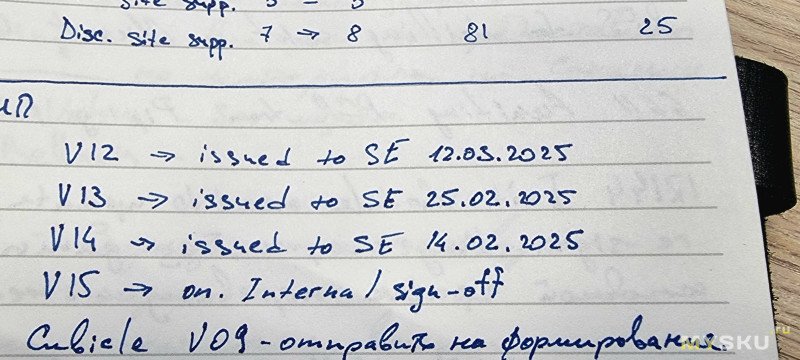 site supp.
Disc. site supp. 7 → 8 81 25
ИП
V12 → issued to SE 12.03.2025
V13 → issued to SE 25.02.2025
V14 → issued to SE 14.02.2025
V15 → on. Internal sign-off
Cubicle V09 - отправить на формирование.
MYSKU.ru